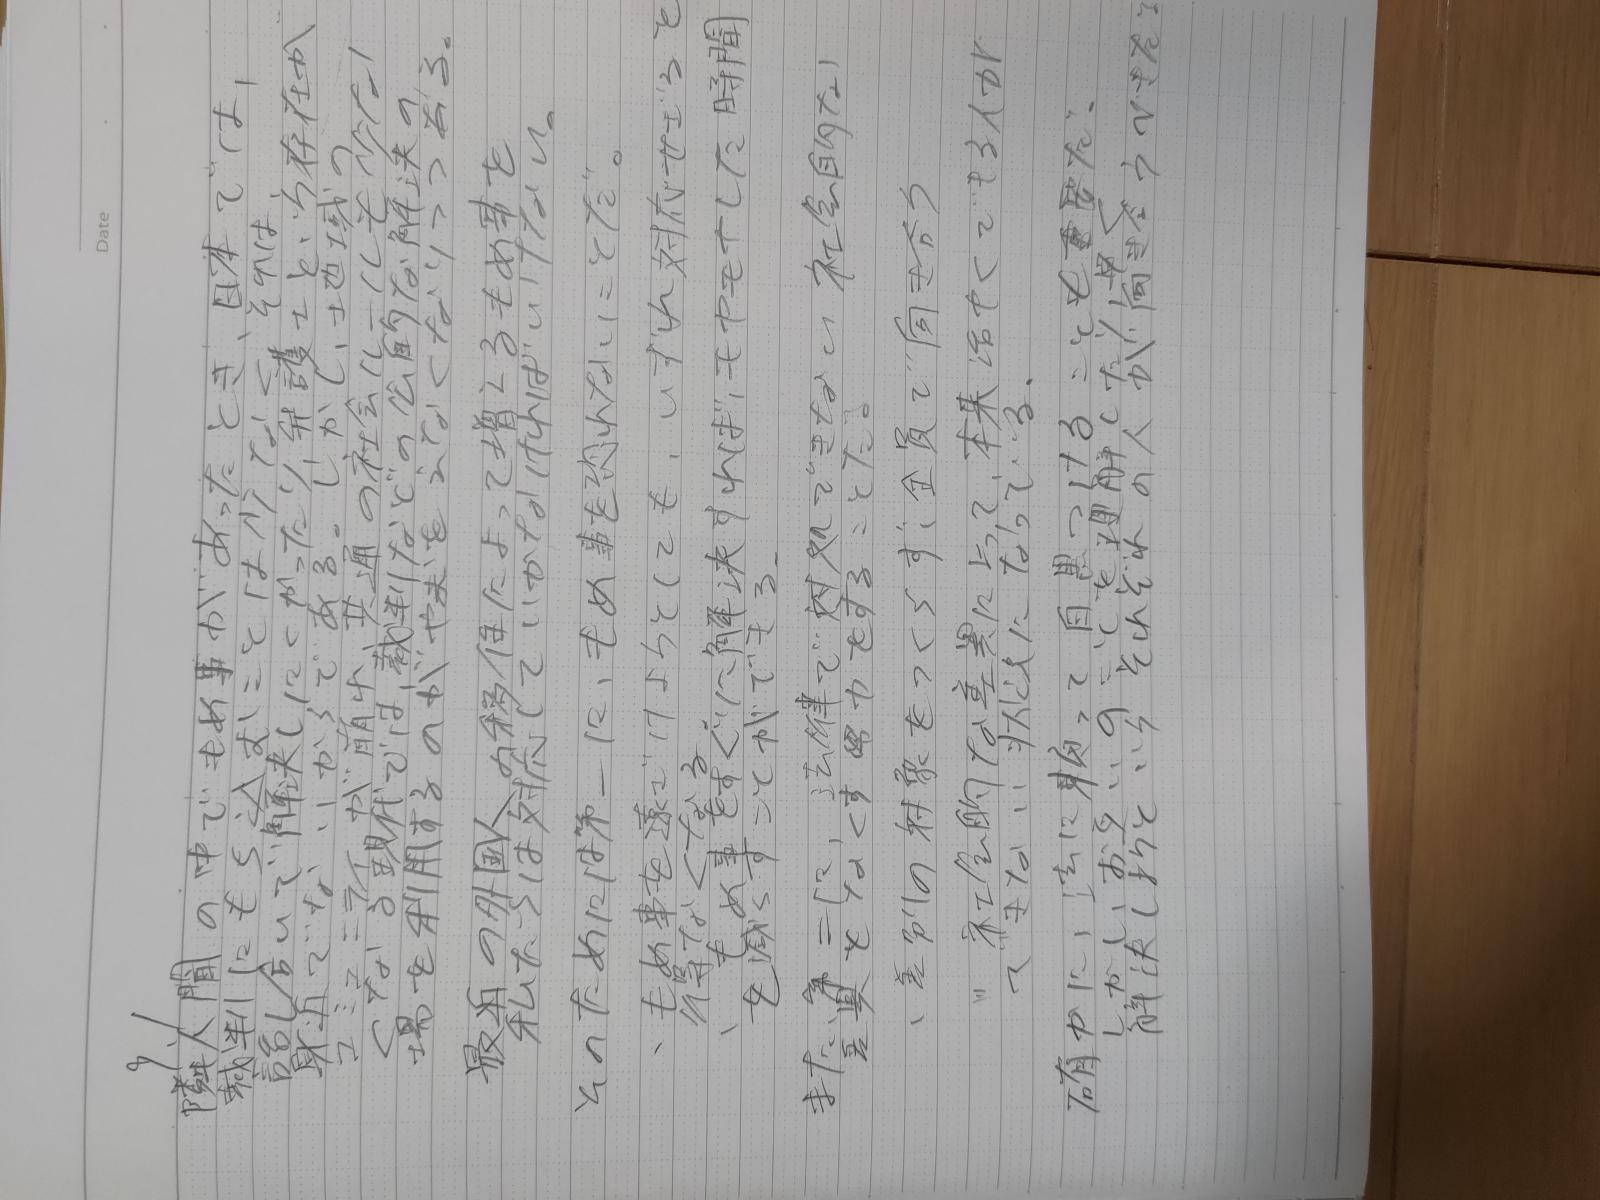 Date
隣人間の中でもめ事があったとき、日本では、
裁判にもち込むことは少なく、それは、
話し合いで解決したがったり弁護士という存在が
身近でないからである。しかし、地域の
コミュニティが崩れ、共通の社会ルールも少な
くなる現代では、裁判などの公的な解決の
場を利用するのがやむをえなくなりつつある。
最近の外国人の移住によって増えるもめ事を
私たちは対応していかなければいけない。
そのためには第一に、もめ事を恐れないことだ。
、もめ事を遠ざけようとしても、いずれ対応せざると
得なくなる
、もめ事をすぐに解決すればモヤモヤした時間
を減らすことができる。
また第二に、法律で対処できない社会的な
差異をなくす努力をすることだ。
、差別の対象をつくらず、全員で向き合う
"社会的な差異によって、本来活やくできる人が
できない状たいになっている。
確かに、法に頼って自黒つけることも重要だ。
しかし、お互いのことを理解したり、
解決しようと それぞれの人が向き合うべきだ。